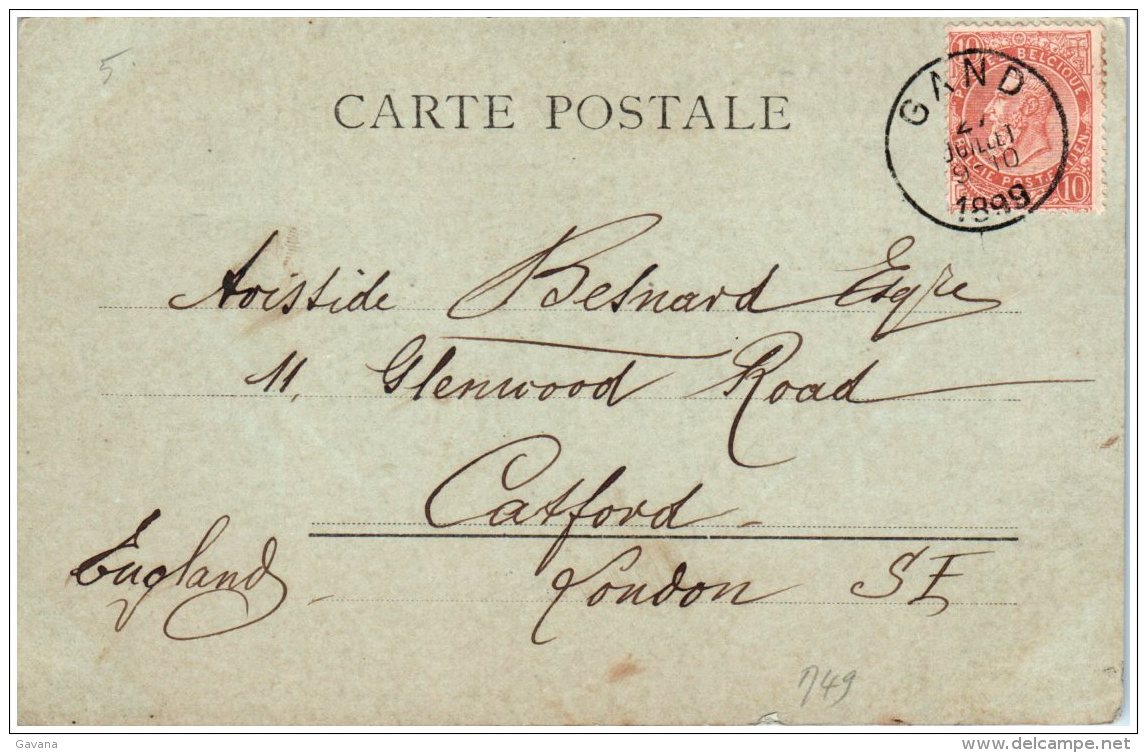 5.
CARTE POSTALE
10 10
POSTES BELGIQUE
BELGIE POSTERIJEN
GAND
27
JUILLET
9-10
1899
Aristide Besnard Esqre
11, Glenwood Road
Catford
London SE
England
Gavana
delcampe.net